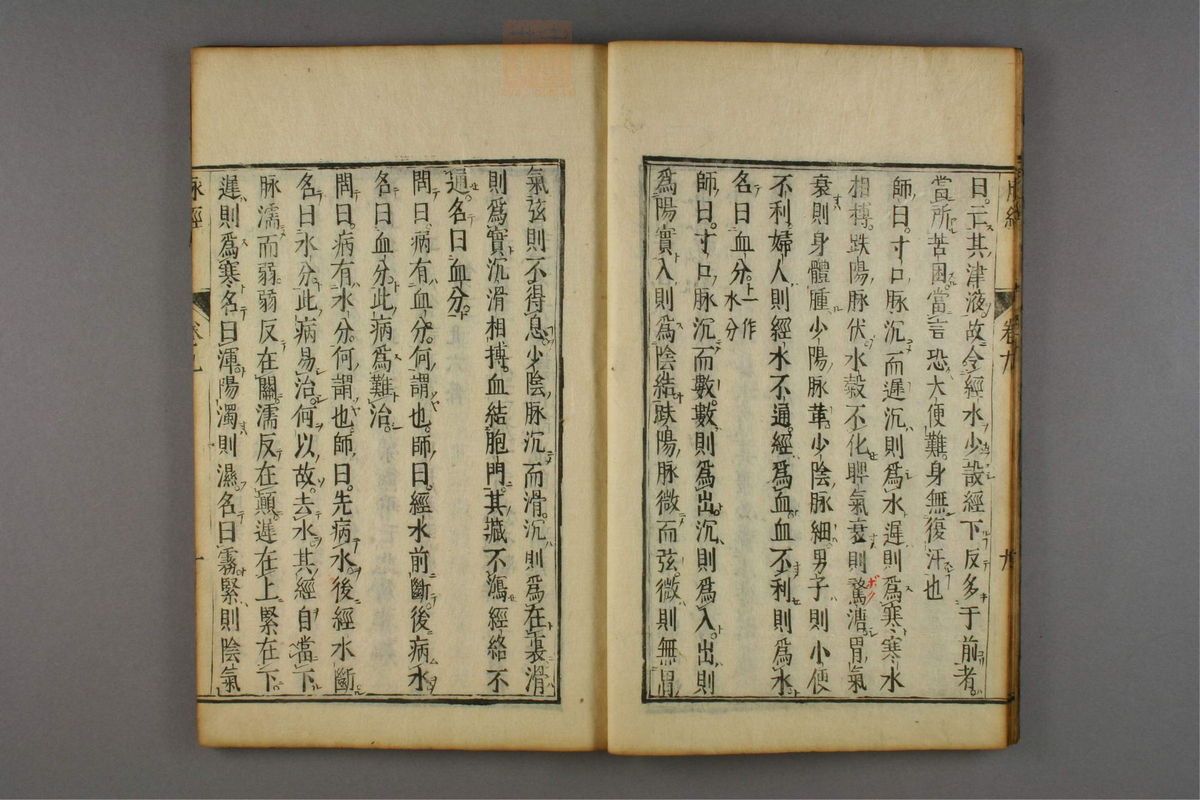 曰亡其津液故令經水少設經下反多于前者
當所苦困當言恐大便難身無復汗也
師曰寸口脈沉而遲沉則爲水遲則爲寒寒水
相搏趺陽脈伏水穀不化脾氣衰則鶩溏胃氣
衰則身體腫少陽脈革少陰脈細男子則小便
不利婦人則經水不通經爲血血不利則爲水
名曰血分一作水分
師曰寸口脈沉而數數則爲出沉則爲入出則
爲陽實入則爲陰結趺陽脈微而弦微則無胃
氣弦則不得息少陰脈沉而滑沉則爲在裏滑
則爲實沉滑相搏血結胞門其藏不瀉經絡不
通名曰血分
問曰病有血分何謂也師曰經水前斷後病水
名曰血分此病爲難治
問曰病有水分何謂也師曰先病水後經水斷
名曰水分此病易治何以故去水其經自當下
脈濡而弱弱反在關濡反在顛遲在上緊在下
遲則爲寒名曰渾陽濁則濕名曰霧緊則陰氣
脉經